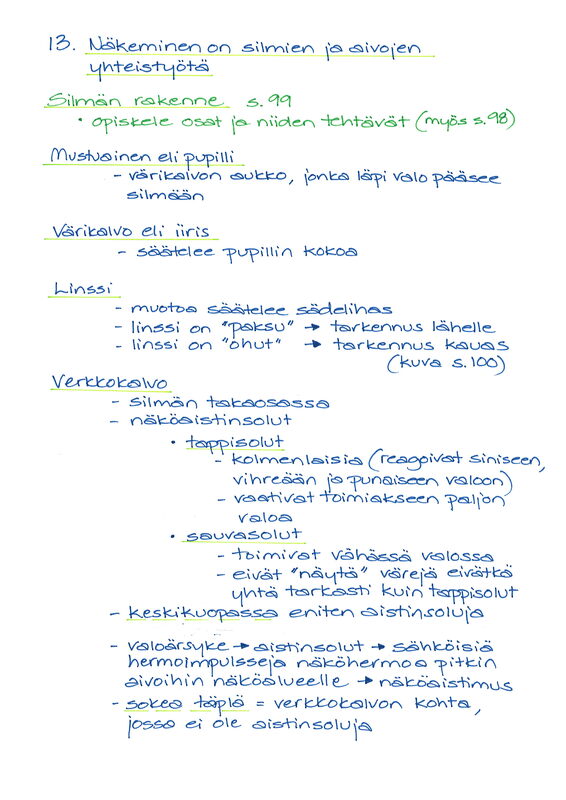 13. Näkeminen on silmien ja aivojen
yhteistyötä
Silmän rakenne s.99
• opiskele osat ja niiden tehtävät (myös s.98)
Mustuainen eli pupilli
- värikalvon aukko, jonka läpi valo pääsee
silmään
Värikalvo eli iiris
- säätelee pupillin kokoa
Linssi
- muotoa säätelee sädelihas
- linssi on "paksu" → tarkennus lähelle
- linssi on "ohut" → tarkennus kauas
(kuva s.100)
Verkkokalvo
- silmän takaosassa
- näköaistinsolut
• tappisolut
- kolmenlaisia (reagoivat siniseen,
vihreään ja punaiseen valoon)
- vaativat toimiakseen paljon
valoa
• sauvasolut
- toimivat vähässä valossa
- eivät "näytä" värejä eivätkä
yhtä tarkasti kuin tappisolut
- keskikuopassa eniten aistinsoluja
- valoärsyke → aistinsolut → sähköisiä
hermoimpulsseja näköhermoa pitkin
aivoihin näköalueelle → näköaistimus
- sokea täplä = verkkokalvon kohta,
jossa ei ole aistinsoluja